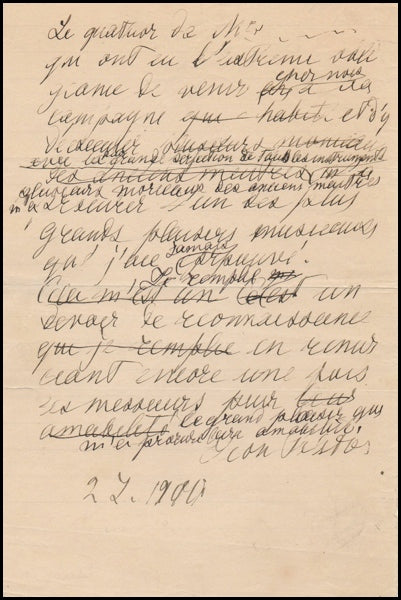 Le quatuor de Mrs
qui ont eu l'extrême obli
geance de venir chez nous à la
campagne qui habite et d'y
exécuter plusieurs morceaux
avec la grande perfection de tous les instruments
des anciens maîtres
plusieurs morceaux des anciens maîtres
m'a procuré un des plus
grands plaisirs musicaux
que j'aie jamais éprouvé.
Je remplis
C'est un
devoir de reconnaissance
que je remplis en remer
ciant encore une fois
ces messieurs pour leur
amabilité le grand plaisir que
m'a procuré
Léon Tolstoï
1900